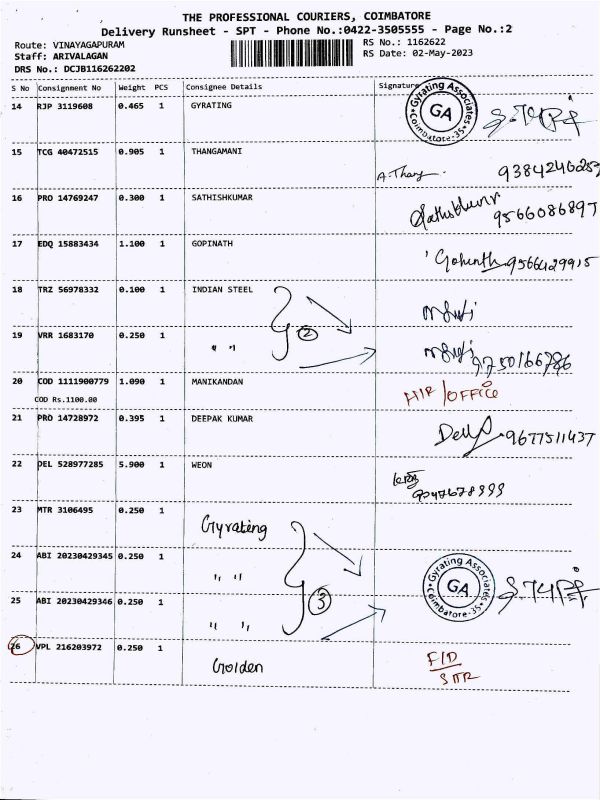 THE PROFESSIONAL COURIERS, COIMBATORE
Delivery Runsheet - SPT - Phone No.:0422-3505555 - Page No.:2
Route: VINAYAGAPURAM RS No.: 1162622
Staff: ARIVALAGAN RS Date: 02-May-2023
DRS No.: DCJB116262202
S No Consignment No Weight PCS Consignee Details Signature
14 RJP 3119608 0.465 1 GYRATING
Gyrating Associates GA Coimbatore-35
15 TCG 40472515 0.905 1 THANGAMANI
A.Thang
16 PRO 14769247 0.300 1 SATHISHKUMAR
Sathishkumar 9566086897
17 EDQ 15883434 1.100 1 GOPINATH
Gopinath 9566429915
18 TRZ 56978332 0.100 1 INDIAN STEEL
2
19 VRR 1683170 0.250 1 " "
9750166786
20 COD 1111900779 1.090 1 MANIKANDAN
COD Rs.1100.00
HIR/OFFICE
21 PRO 14728972 0.395 1 DEEPAK KUMAR
9677511437
22 DEL 528977285 5.900 1 WEON
23 MTR 3106495 0.250 1
Gyrating
24 ABI 20230429345 0.250 1
" "
3
Gyrating Associates GA Coimbatore-35
25 ABI 20230429346 0.250 1
" "
26 VPL 216203972 0.250 1
Golden
F/D